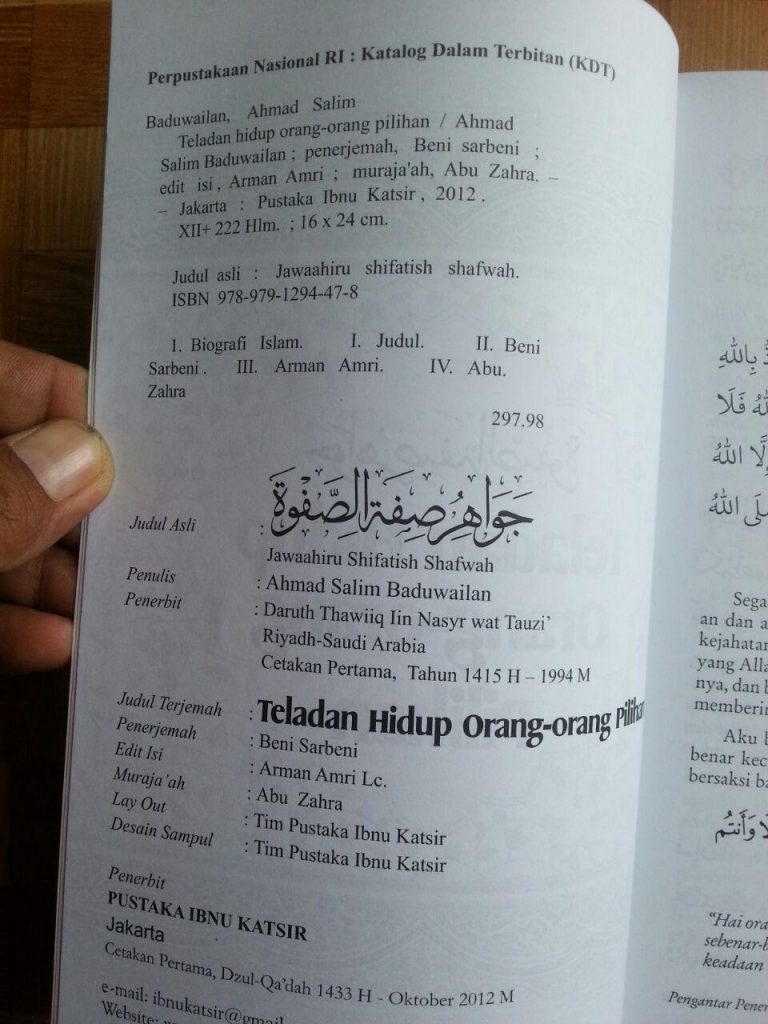 Perpustakaan Nasional RI : Katalog Dalam Terbitan (KDT)
Baduwailan, Ahmad Salim
Teladan hidup orang-orang pilihan / Ahmad
Salim Baduwailan ; penerjemah, Beni sarbeni ;
edit isi , Arman Amri ; muraja'ah, Abu Zahra. –
– Jakarta : Pustaka Ibnu Katsir , 2012 .
XII+ 222 Hlm. ; 16 x 24 cm.
Judul asli : Jawaahiru shifatish shafwah.
ISBN 978-979-1294-47-8
1. Biografi Islam. I. Judul. II. Beni
Sarbeni . III. Arman Amri. IV. Abu.
Zahra
297.98
Judul Asli : جَوَاهِرُ صِفَةِ الصَّفْوَةِ
Jawaahiru Shifatish Shafwah
Penulis : Ahmad Salim Baduwailan
Penerbit : Daruth Thawiiq Iin Nasyr wat Tauzi’
Riyadh-Saudi Arabia
Cetakan Pertama, Tahun 1415 H – 1994 M
Judul Terjemah : Teladan Hidup Orang-orang Pilihan
Penerjemah : Beni Sarbeni
Edit Isi : Arman Amri Lc.
Muraja’ah : Abu Zahra
Lay Out : Tim Pustaka Ibnu Katsir
Desain Sampul : Tim Pustaka Ibnu Katsir
Penerbit
PUSTAKA IBNU KATSIR
Jakarta
Cetakan Pertama, Dzul-Qa’dah 1433 H - Oktober 2012 M
e-mail: ibnukatsir@gmail
Website:
بِاللهِ
فَلَا
إِلَّا اللهُ
صَلَى اللهُ
Sega
an dan a
kejahatan
yang Alla
nya, dan b
memberin
Aku b
benar kec
bersaksi ba
وَأَنتُم
“Hai ora
sebenar-b
keadaan
Pengantar Pener